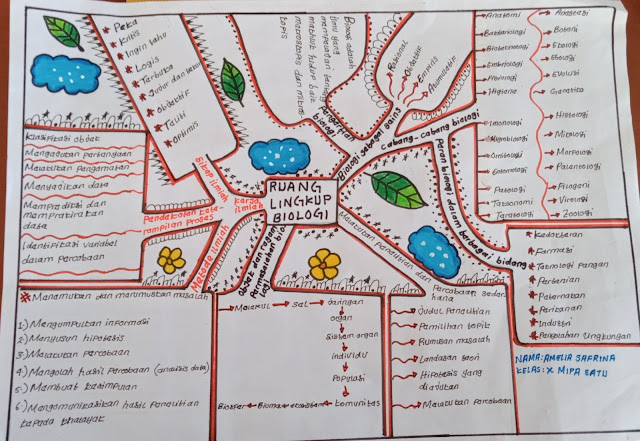 Peka
Kritis
Ingin tahu
Logis
Terbuka
Jujur dan tekun
Objektif
Teliti
Optimis
Sikap ilmiah
Biologi adalah
ilmu yang
mempelajari tentang
makhluk hidup baik
makroskopis dan mikros
kopis
biologi
Rasional
Objektif
Empiris
Akumulatif
Biologi sebagai sains
Anatomi
Bakteriologi
Bioteknologi
Embriologi
Fisiologi
Higiene
Mikrobiologi
Ornitologi
Entomologi
Patologi
Taksonomi
Teratologi
Botani
Ekologi
Etologi
Evolusi
Genetika
Histologi
Mikologi
Morfologi
Palentologi
Filogeni
Virologi
Zoologi
cabang-cabang biologi
Peran biologi dalam berbagai bidang
Kedokteran
Farmasi
Teknologi Pangan
Pertanian
Peternakan
Perikanan
Industri
Pengolahan lingkungan
Klasifikasi objek
Mengajukan pertanyaan
Melakukan Pengamatan
Menyajikan data
Memprediksi dan
memprakirakan
data
Identifikasi variabel
dalam percobaan
Pendekatan kete-
rampilan proses
kerja
ilmiah
RUANG
LINGKUP
BIOLOGI
Metode ilmiah
Menemukan dan merumuskan masalah
1.) Mengumpulkan informasi
2.) Menyusun hipotesis
3.) Melakukan Percobaan
4.) Mengolah hasil Percobaan (analisis data)
5.) Membuat kesimpulan
6.) Mengomunikasikan hasil Penelitian
kepada khalayak
Objek dan ragam
Permasalahan bio
logi
Molekul
sel
jaringan
organ
Sistem organ
individu
Populasi
komunitas
ekosistem
Bioma
Biosfer
Melakukan penelitian dan
Percobaan sederhana
Judul Penelitian
Pemilihan topik
Rumusan masalah
Landasan teori
Hipotesis yang
diajukan
Melakukan Percobaan
NAMA: AMELIA SAFRINA
KELAS: X MIPA SATU